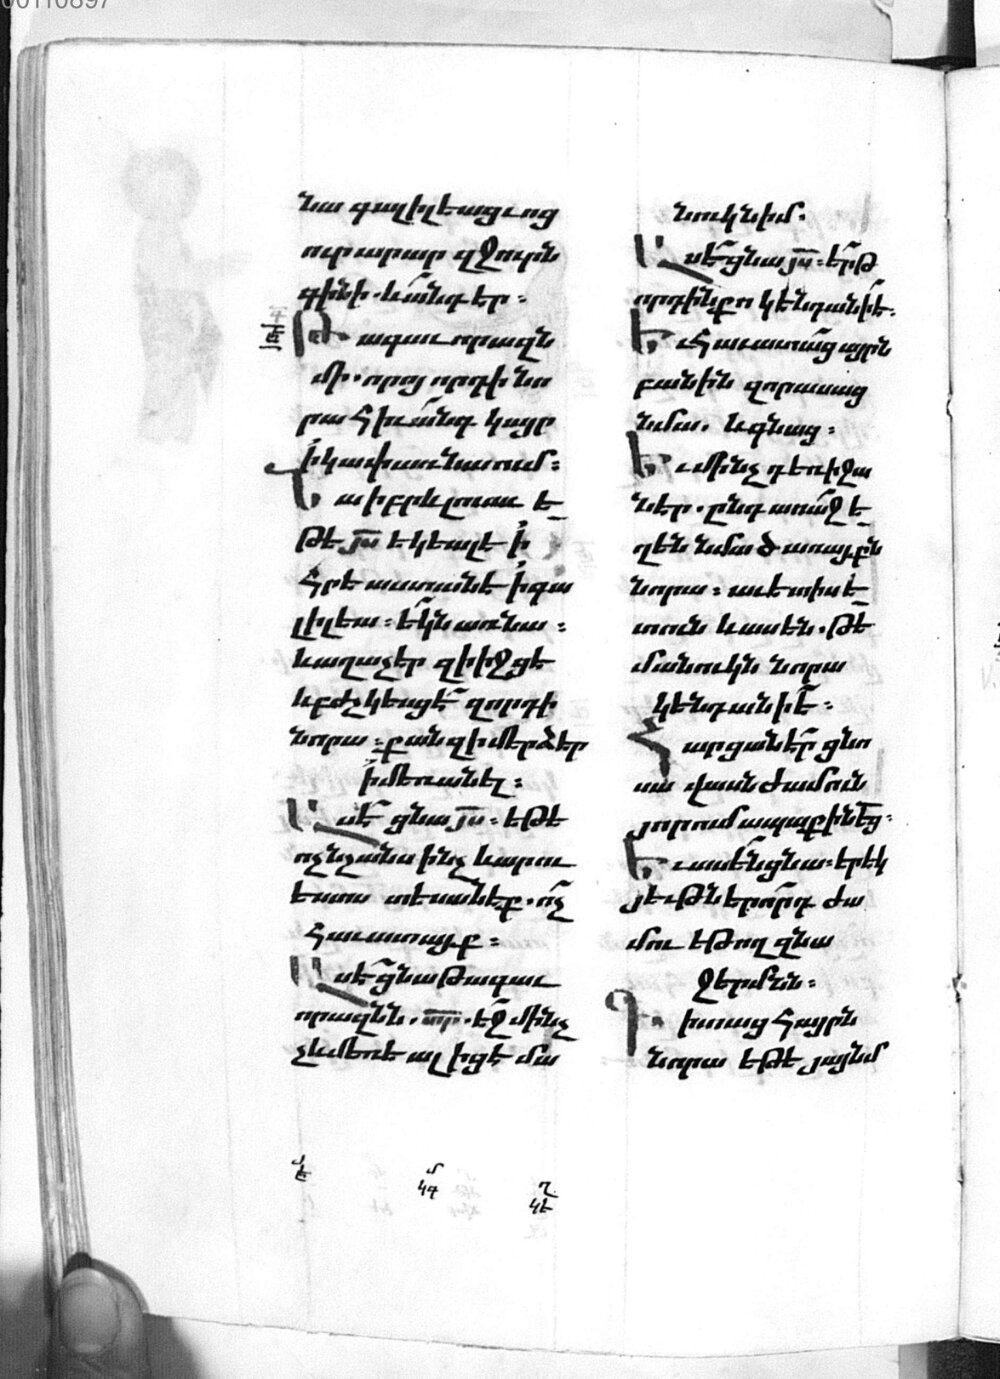 00110897
նա գալիլեացւոց
ուր արար զջուրն
գինի. և անդ էր։
Թագաւորազն
մի. որոյ որդի նո
րա հիւանդ կայր
ի կափառնաում։
Նա իբրև լուաւ ե
թէ յս եկեալ է ի
հրէաստանէ ի գա
լիլեա։ եկն առ նա։
և աղաչէր զի իջցէ
և բժշկեսցէ զորդի
նորա։ քանզի մերձ էր
ի մեռանել։
Ասէ ցնա յս։ եթէ
ոչ նշանս ինչ և արու
եստս տեսանէք. ոչ
հաւատայք։
Ասէ ցնա թագաւ
որազնն. տր. էջ մինչ
չև մեռեալ իցէ մա
նուկն իմ։
Ասէ ցնա յս։ երթ
որդին քո կենդանի է։
Եւ հաւատաց այրն
բանին զոր ասաց
նմա. և գնաց։
Եւ մինչդեռ իջա
նէր. ընդ առաջ ե
ղեն նմա ծառայքն
նորա։ աւետիս ե
տուն և ասեն. թէ
մանուկն նորա
կենդանի է։
Հարցանէր ցնո
սա վասն ժամուն
յորում ապաքինեց։
Եւ ասեն ցնա։ երէկ
յեւթներորդ ժա
մու եթող զնա
ջերմնն։
Գիտաց հայրն
նորա եթէ յայնմ